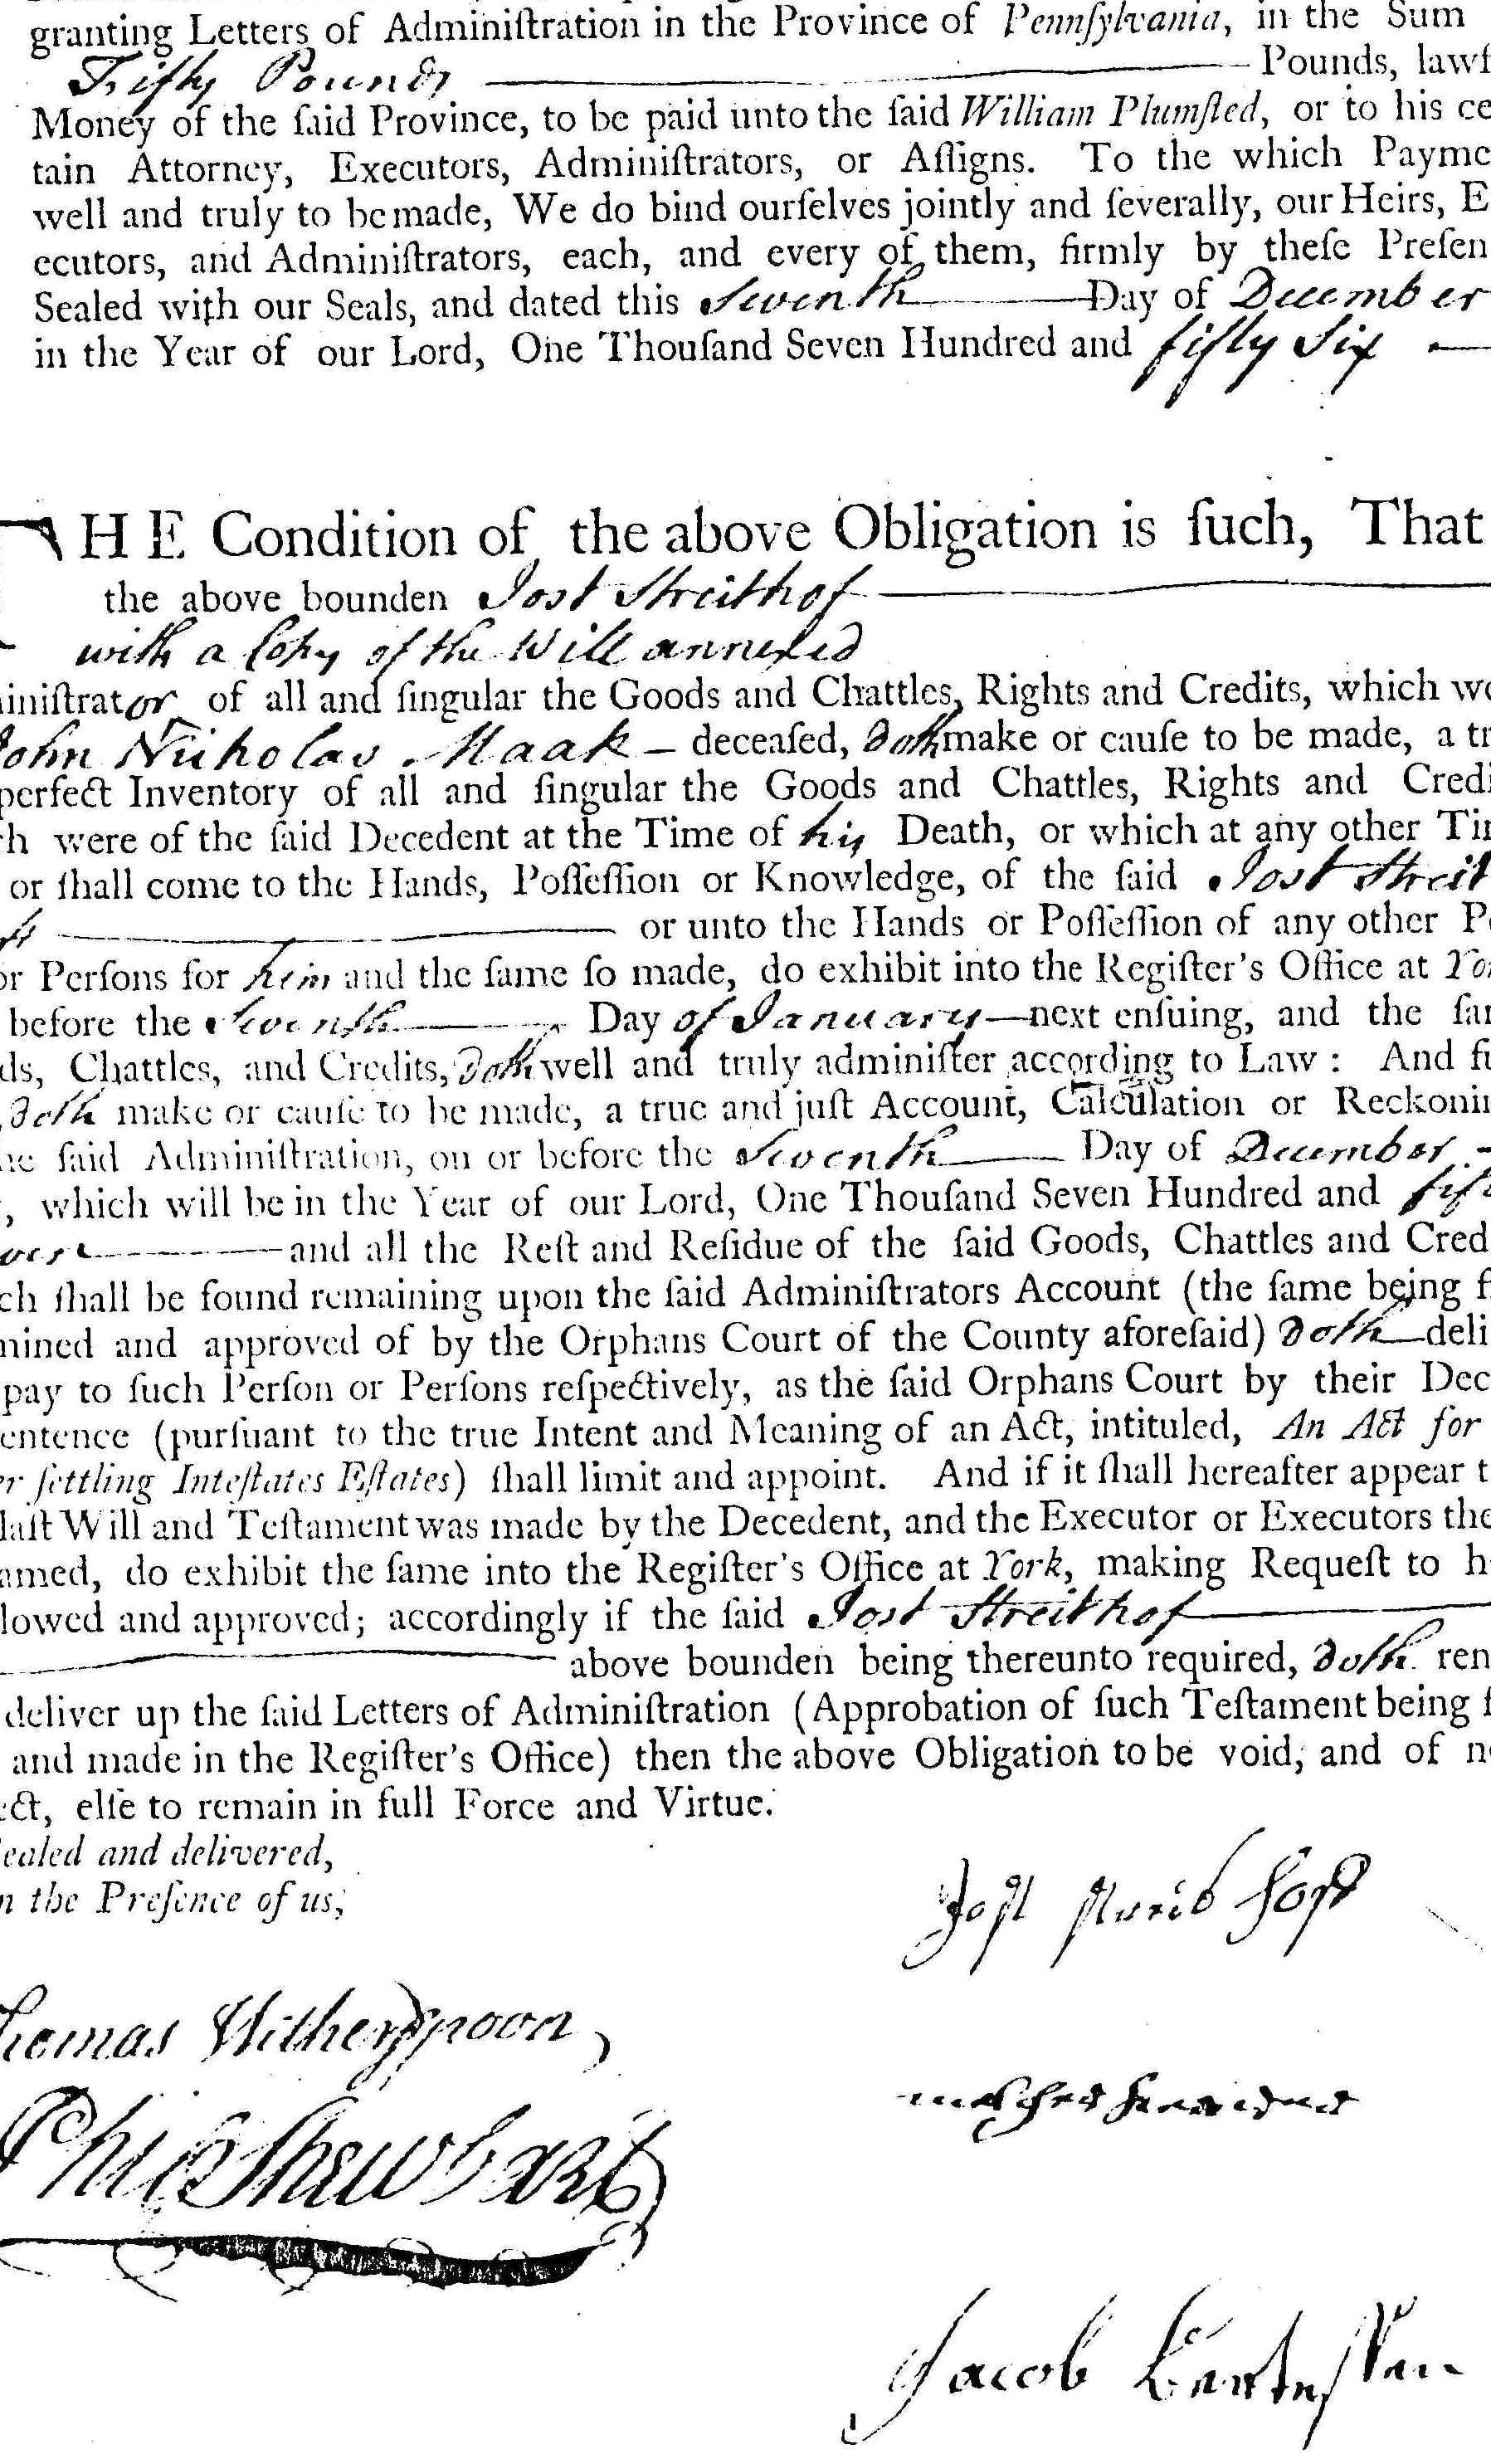 granting Letters of Adminiſtration in the Province of Pennſylvania, in the Sum
Fifty Pounds Pounds, lawf
Money of the ſaid Province, to be paid unto the ſaid William Plumſted, or to his ce
tain Attorney, Executors, Adminiſtrators, or Aſſigns. To the which Payme
well and truly to be made, We do bind ourſelves jointly and ſeverally, our Heirs, E
ecutors, and Adminiſtrators, each, and every of them, firmly by theſe Preſen
Sealed with our Seals, and dated this Seventh Day of December
in the Year of our Lord, One Thouſand Seven Hundred and fifty Six
THE Condition of the above Obligation is ſuch, That
the above bounden Jost Streithof
with a Copy of the Will annexed
iniſtrator of all and ſingular the Goods and Chattles, Rights and Credits, which we
John Nicholas Maak – deceaſed, doth make or cauſe to be made, a tr
perfect Inventory of all and ſingular the Goods and Chattles, Rights and Credi
h were of the ſaid Decedent at the Time of his Death, or which at any other Tim
or ſhall come to the Hands, Poſſeſſion or Knowledge, of the ſaid Jost Streit
or unto the Hands or Poſſeſſion of any other Pe
or Perſons for him and the ſame ſo made, do exhibit into the Regiſter's Office at Yor
before the Seventh Day of January next enſuing, and the ſam
ds, Chattles, and Credits, doth well and truly adminiſter according to Law: And fu
doth make or cauſe to be made, a true and juſt Account, Calculation or Reckonin
he ſaid Adminiſtration, on or before the Seventh Day of December
, which will be in the Year of our Lord, One Thouſand Seven Hundred and fift
and all the Reſt and Reſidue of the ſaid Goods, Chattles and Cred
ch ſhall be found remaining upon the ſaid Adminiſtrators Account (the ſame being f
mined and approved of by the Orphans Court of the County aforeſaid) doth deli
pay to ſuch Perſon or Perſons reſpectively, as the ſaid Orphans Court by their Dec
entence (purſuant to the true Intent and Meaning of an Act, intituled, An Act for
er ſettling Inteſtates Eſtates) ſhall limit and appoint. And if it ſhall hereafter appear t
laſt Will and Teſtament was made by the Decedent, and the Executor or Executors the
amed, do exhibit the ſame into the Regiſter's Office at York, making Requeſt to h
lowed and approved; accordingly if the ſaid Jost Streithof
above bounden being thereunto required, doth ren
deliver up the ſaid Letters of Adminiſtration (Approbation of ſuch Teſtament being f
and made in the Regiſter's Office) then the above Obligation to be void, and of n
ect, elſe to remain in full Force and Virtue.
ealed and delivered,
n the Preſence of us,
Jost Streit Hoff
Thomas Witherspoon,
Jacob